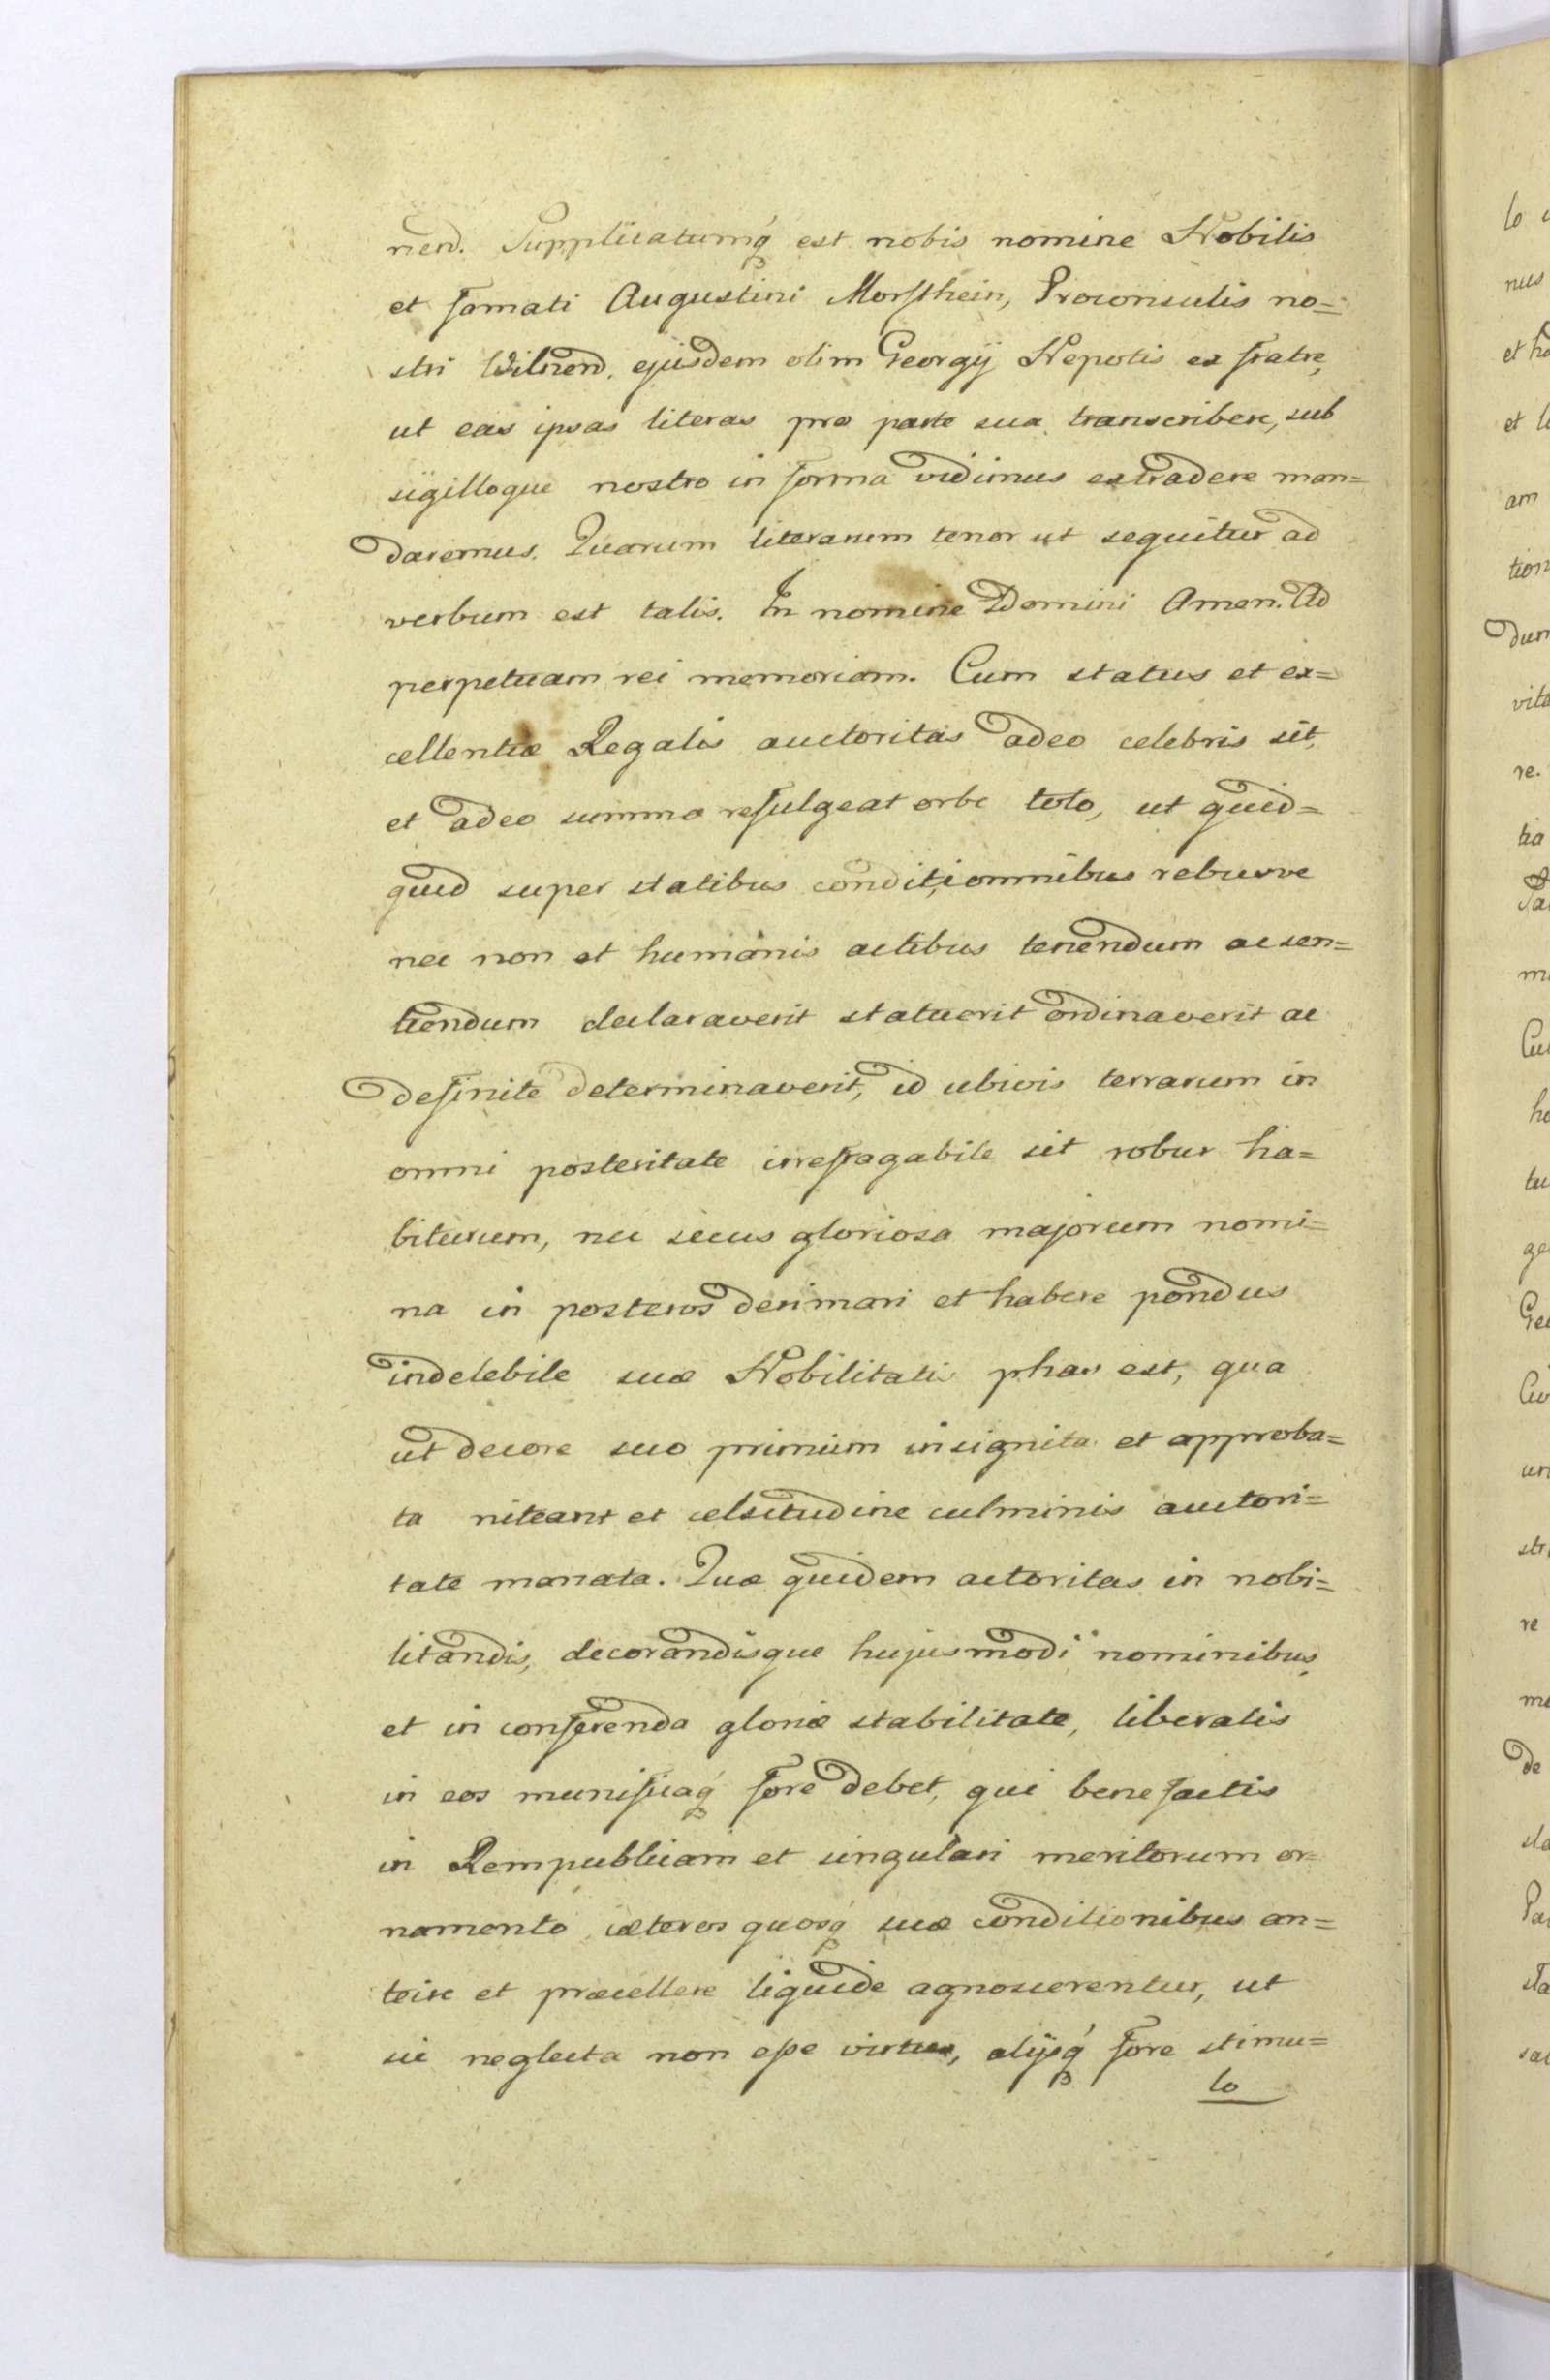 nend. Supplicatumq́ est nobis nomine Nobilis
et famati Augustini Morsthein, Proconsulis no=
stri Wilnend. ejusdem olim Georgÿ Nepotis ex fratre,
ut eas ipsas literas pro parte sua transcribere, sub
sigilloque nostro in forma vidimus extradere man=
daremus. Quarum literarum tenor ut sequitur ad
verbum est talis. In nomine Domini Amen. Ad
perpetuam rei memoriam. Cum status et ex=
cellentiæ Regalis auctoritas adeo celebris sit,
et adeo summa refulgeat orbe toto, ut quid=
quid super statibus conditiomnibus rebusve
nec non et humanis actibus tenendum ac sen=
tiendum declaraverit statuerit ordinaverit ac
definite determinaverit, id ubivis terrarum in
omni posteritate irrefragabile sit robur ha=
biturum, nec secus gloriosa majorum nomi=
na in posteros derimari et habere pondus
indelebile suæ Nobilitatis phas est, qua
ut decore suo primum insignita et approba=
ta niteant et celsitudine culminis auctori=
tate manata. Quæ quidem actoritas in nobi=
litandis, decorandisque hujusmodi nominibus,
et in conferenda gloriæ stabilitate, liberalis
in eos munificaq́ fore debet, qui benefactis
in Rempublicam et singulari meritorum or=
namento cæteros quosq́ suæ conditionibus an=
teire et præcellere liquide agnoscerentur, ut
sic neglecta non esse virtus, alÿsq́ fore stimu=
lo